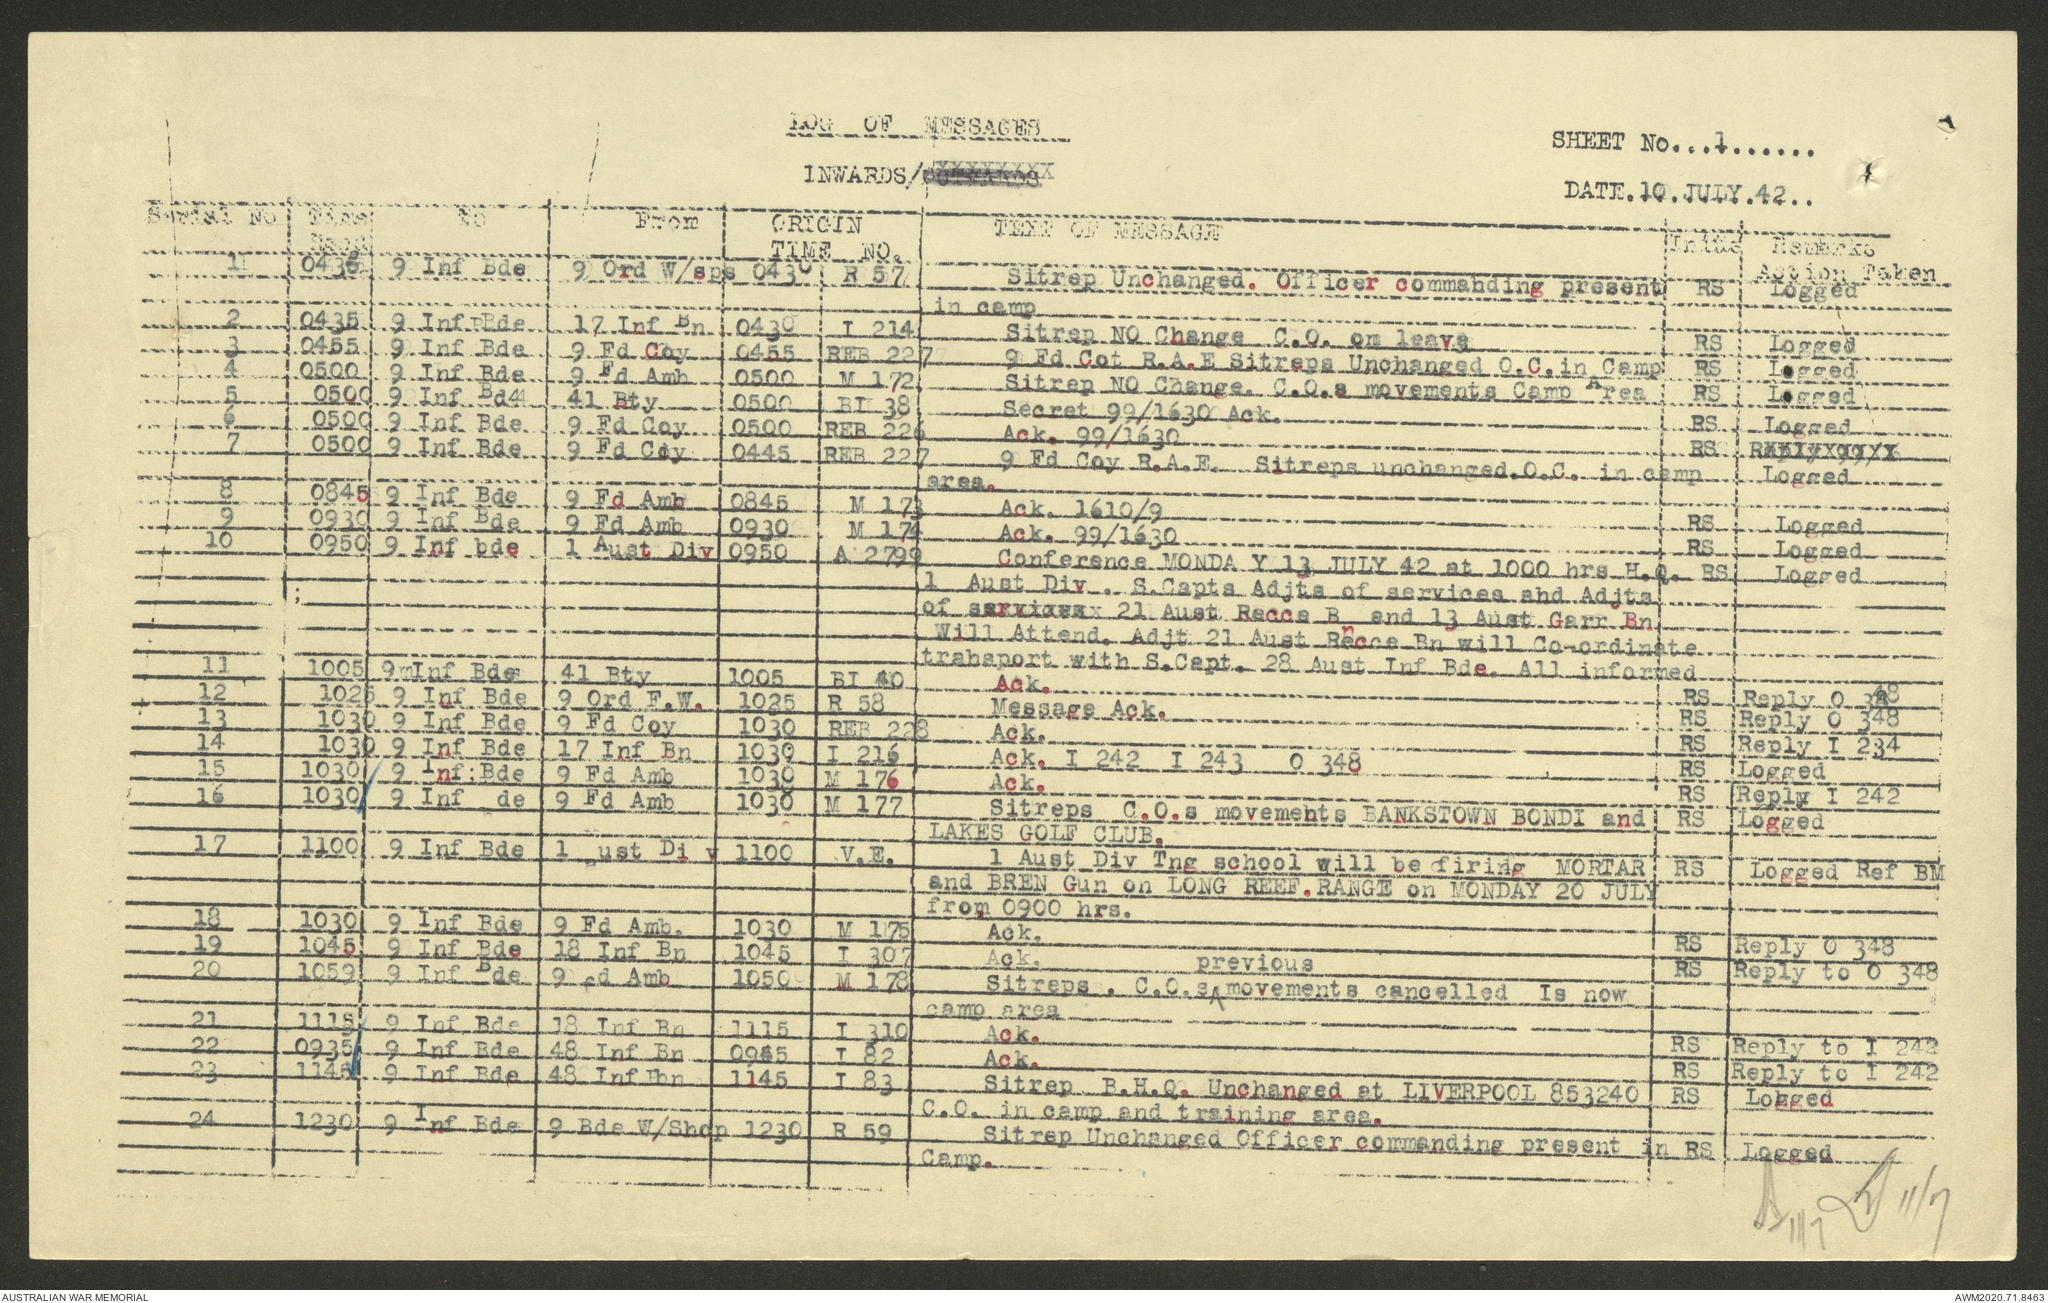 LOG OF MESSAGES
INWARDS/OUTWARDS
SHEET No...1......
DATE.10.JULY.42..
Serial No Time Recd To From ORIGIN TIME NO. TEXT OF MESSAGE Initls Remarks Action Taken
1 0435 9 Inf Bde 9 Ord W/sps 0430 R 57 Sitrep Unchanged. Officer commahding present RS Logged
in camp
2 0435 9 Inf Bde 17 Inf Bn 0430 I 214 Sitrep NO Change C.O. om leave RS Logged
3 0455 9 Inf Bde 9 Fd Coy 0455 REB 227 9 Fd Cot R.A.E Sitreps Unchanged O.C.in Camp RS Logged
4 0500 9 Inf Bde 9 Fd Amb 0500 M 172 Sitrep NO Change. C.O.s movements Camp Area RS Logged
5 0500 9 Inf Bd4 41 Bty 0500 BI 38 Secret 99/1630 Ack. RS Logged
6 0500 9 Inf Bde 9 Fd Coy 0500 REB 226 Ack. 99/1630 RS
7 0500 9 Inf Bde 9 Fd Coy 0445 REB 227 9 Fd Coy R.A.E. Sitreps unchanged.O.C. in camp Logged
area.
8 0845 9 Inf Bde 9 Fd Amb 0845 M 173 Ack. 1610/9 RS Logged
9 0930 9 Inf Bde 9 Fd Amb 0930 M 174 Ack. 99/1630 RS Logged
10 0950 9 Inf bde 1 Aust Div 0950 A 2799 Conference MONDA Y 13 JULY 42 at 1000 hrs H.Q. RS Logged
1 Aust Div . S.Capts Adjts of services ahd Adjts
of servicesx 21 Aust Recce Bn and 13 Aust Garr Bn
Will Attend. Adjt 21 Aust Recce Bn will Co-ordinate
trahsport with S.Capt. 28 Aust Inf Bde. All informed
11 1005 9 Inf Bde 41 Bty 1005 BI 40 Ack. RS Reply O 348
12 1025 9 Inf Bde 9 Ord F.W. 1025 R 58 Message Ack. RS Reply O 348
13 1030 9 Inf Bde 9 Fd Coy 1030 REB 228 Ack. RS Reply I 234
14 1030 9 Inf Bde 17 Inf Bn 1030 I 216 Ack. I 242 I 243 O 348 RS Logged
15 1030 9 Inf Bde 9 Fd Amb 1030 M 176 Ack. RS Reply I 242
16 1030 9 Inf de 9 Fd Amb 1030 M 177 Sitreps C.O.s movements BANKSTOWN BONDI and RS Logged
LAKES GOLF CLUB.
17 1100 9 Inf Bde 1 ust Di v 1100 V.E. 1 Aust Div Tng school will be firing MORTAR RS Logged Ref BM
and BREN Gun on LONG REEF.RANGE on MONDAY 20 JULY
from 0900 hrs.
18 1030 9 Inf Bde 9 Fd Amb. 1030 M 175 Ack. RS Reply O 348
19 1045 9 Inf Bde 18 Inf Bn 1045 I 307 Ack. RS Reply to O 348
20 1059 9 Inf Bde 9 fd Amb 1050 M 178 Sitreps . C.O.s previous movements cancelled Is now
camp area
21 1115 9 Inf Bde 18 Inf Bn 1115 I 310 Ack. RS Reply to I 242
22 0935 9 Inf Bde 48 Inf Bn 0945 I 82 Ack. RS Reply to I 242
23 1145 9 Inf Bde 48 Inf bn 1145 I 83 Sitrep B.H.Q. Unchanged at LIVERPOOL 853240 RS Logged
C.O. in camp and training area.
24 1230 9 Inf Bde 9 Bde W/Shop 1230 R 59 Sitrep Unchanged Officer commanding present in RS Logged
Camp.
11/7 11/7
AUSTRALIAN WAR MEMORIAL
AWM2020.71.8463